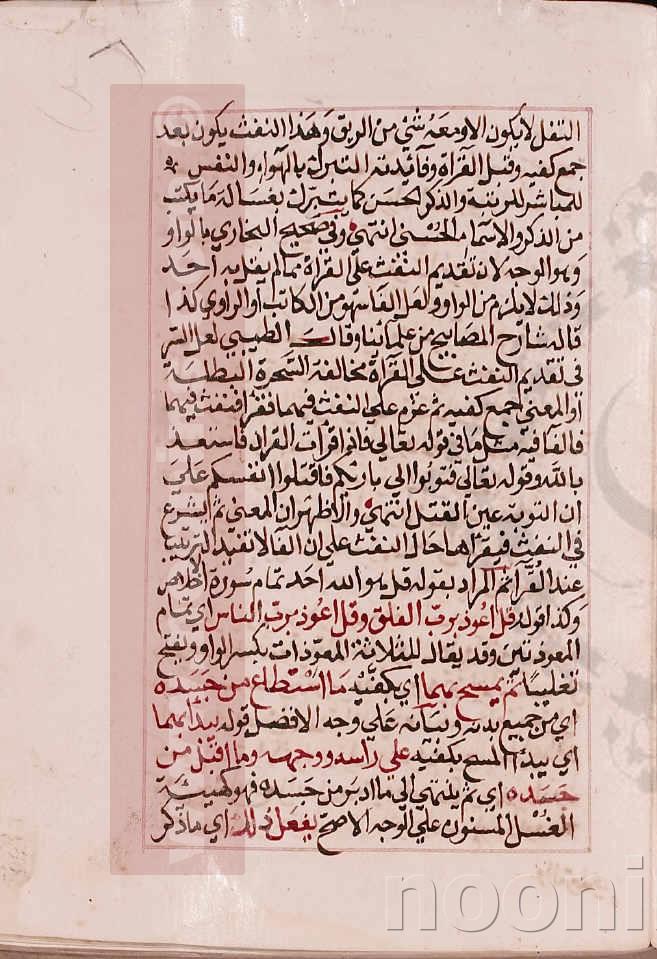 التفل لا يكون الا ومعه شئ من الريق وهذا النفث يكون بعد
جمع كفيه وقبل القراة وفايدته التبرك بالهواء والنفس
المباشر للرقية والذكر الحسن كما يتبرك بغسالة ما يكتب
من الذكر والاسماء الحسنى انتهى وفي صحيح البخاري بالواو
وهو الوجه لان تقديم النفث على القراة مما لم يقل به احد
وذلك لا يلزم من الواو ولعل الفا سهو من الكاتب او الراوي كذا
قاله شارح المصابيح من علمائنا وقال الطيبي لعل السر
في تقديم النفث على القراة مخالفة السحرة البطلة
او المعنى جمع كفيه ثم عزم على النفث فيهما فقرا فنفث فيهما
فالفا فيه مثل ما في قوله تعالى فاذا قرات القران فاستعذ
بالله وقوله تعالى فتوبوا الى بارئكم فاقتلوا انفسكم على
ان التوبة عين القتل انتهى والاظهر ان المعنى ثم يشرع
في النفث فيقراهما حال النفث على ان الفا لا تفيد الترتيب
عند الفراء ثم المراد بقوله قل هو الله احد تمام سورة الاخلاص
وكذا قوله قل اعوذ برب الفلق وقل اعوذ برب الناس اي تمام
المعوذتين وقد يقال للثلاثة المعوذات بكسر الواو وبفتح
تغليبا ثم يمسح بهما اي بكفيه ما استطاع من جسده
اي من جميع بدنه وبيانه على وجه الافضل قوله يبدا بهما
اي يبدا المسح بكفيه على راسه ووجهه وما اقبل من
جسده اي ثم ينتهي الى ما ادبر من جسده فهو كهيئة
الغسل المسنون على الوجه الاصح يفعل ذلك اي ما ذكر
nooni